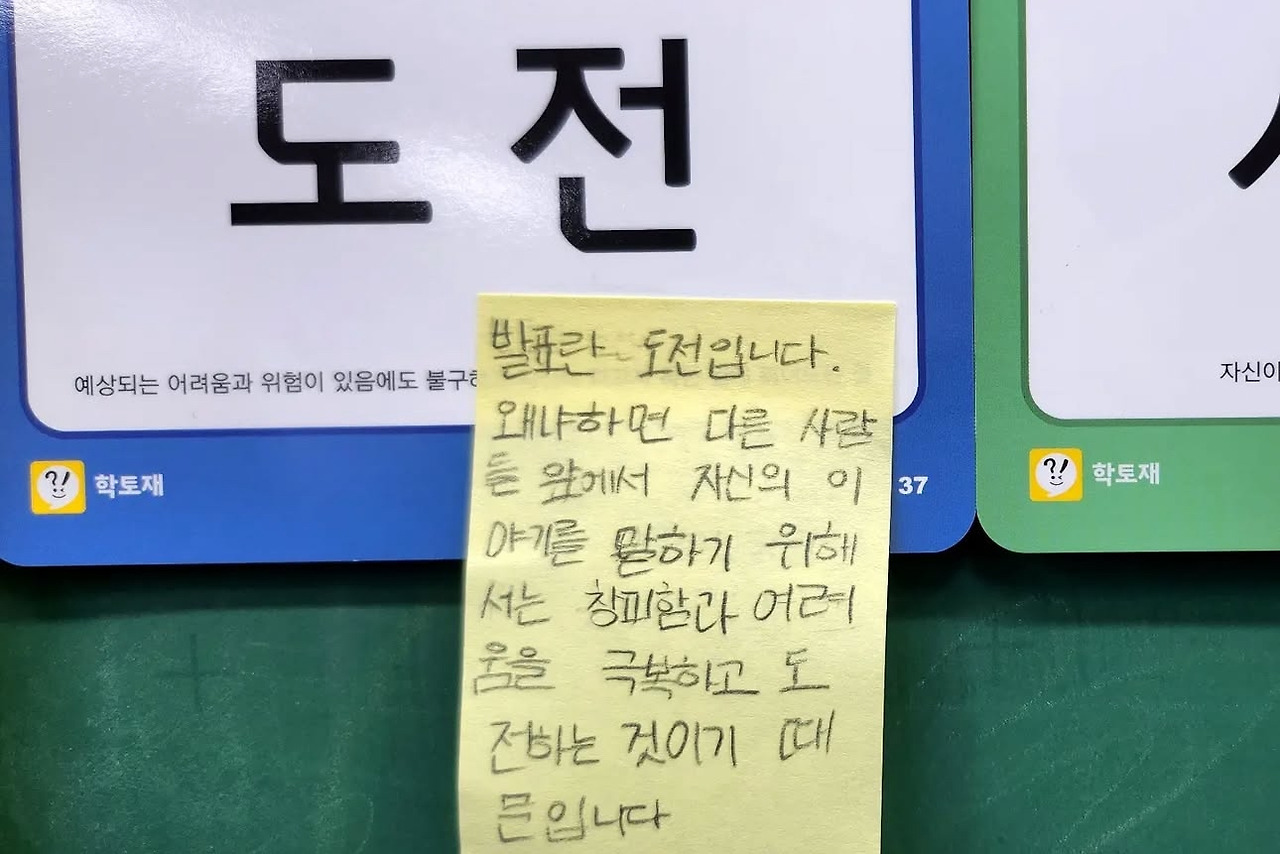 도전
예상되는 어려움과 위험이 있음에도 불구하
발표란 도전입니다.
왜냐하면 다른 사람
들 앞에서 자신의 이
야기를 말하기 위해
서는 창피함과 어려
움을 극복하고 도
전하는 것이기 때
문입니다
?!
학토재
37
자신이
?!
학토재